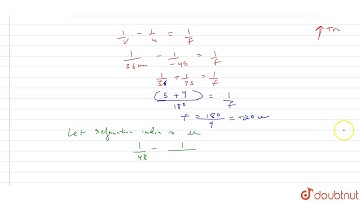 1/v - 1/u = 1/f
↑ Tve
1/36cm - 1/-45 = 1/f
1/36 + 1/45 = 1/f
(5 + 4)/180 = 1/f
f = 180/9 = +20 cm
Let refractive index is u
1/48 - 1/
doubtnut